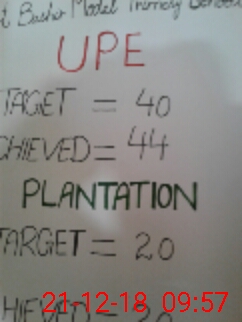 Model Primary
UPE
TARGET = 40
CHIEVED = 44
PLANTATION
TARGET = 20
HIEVED = 20
21-12-18 09:57